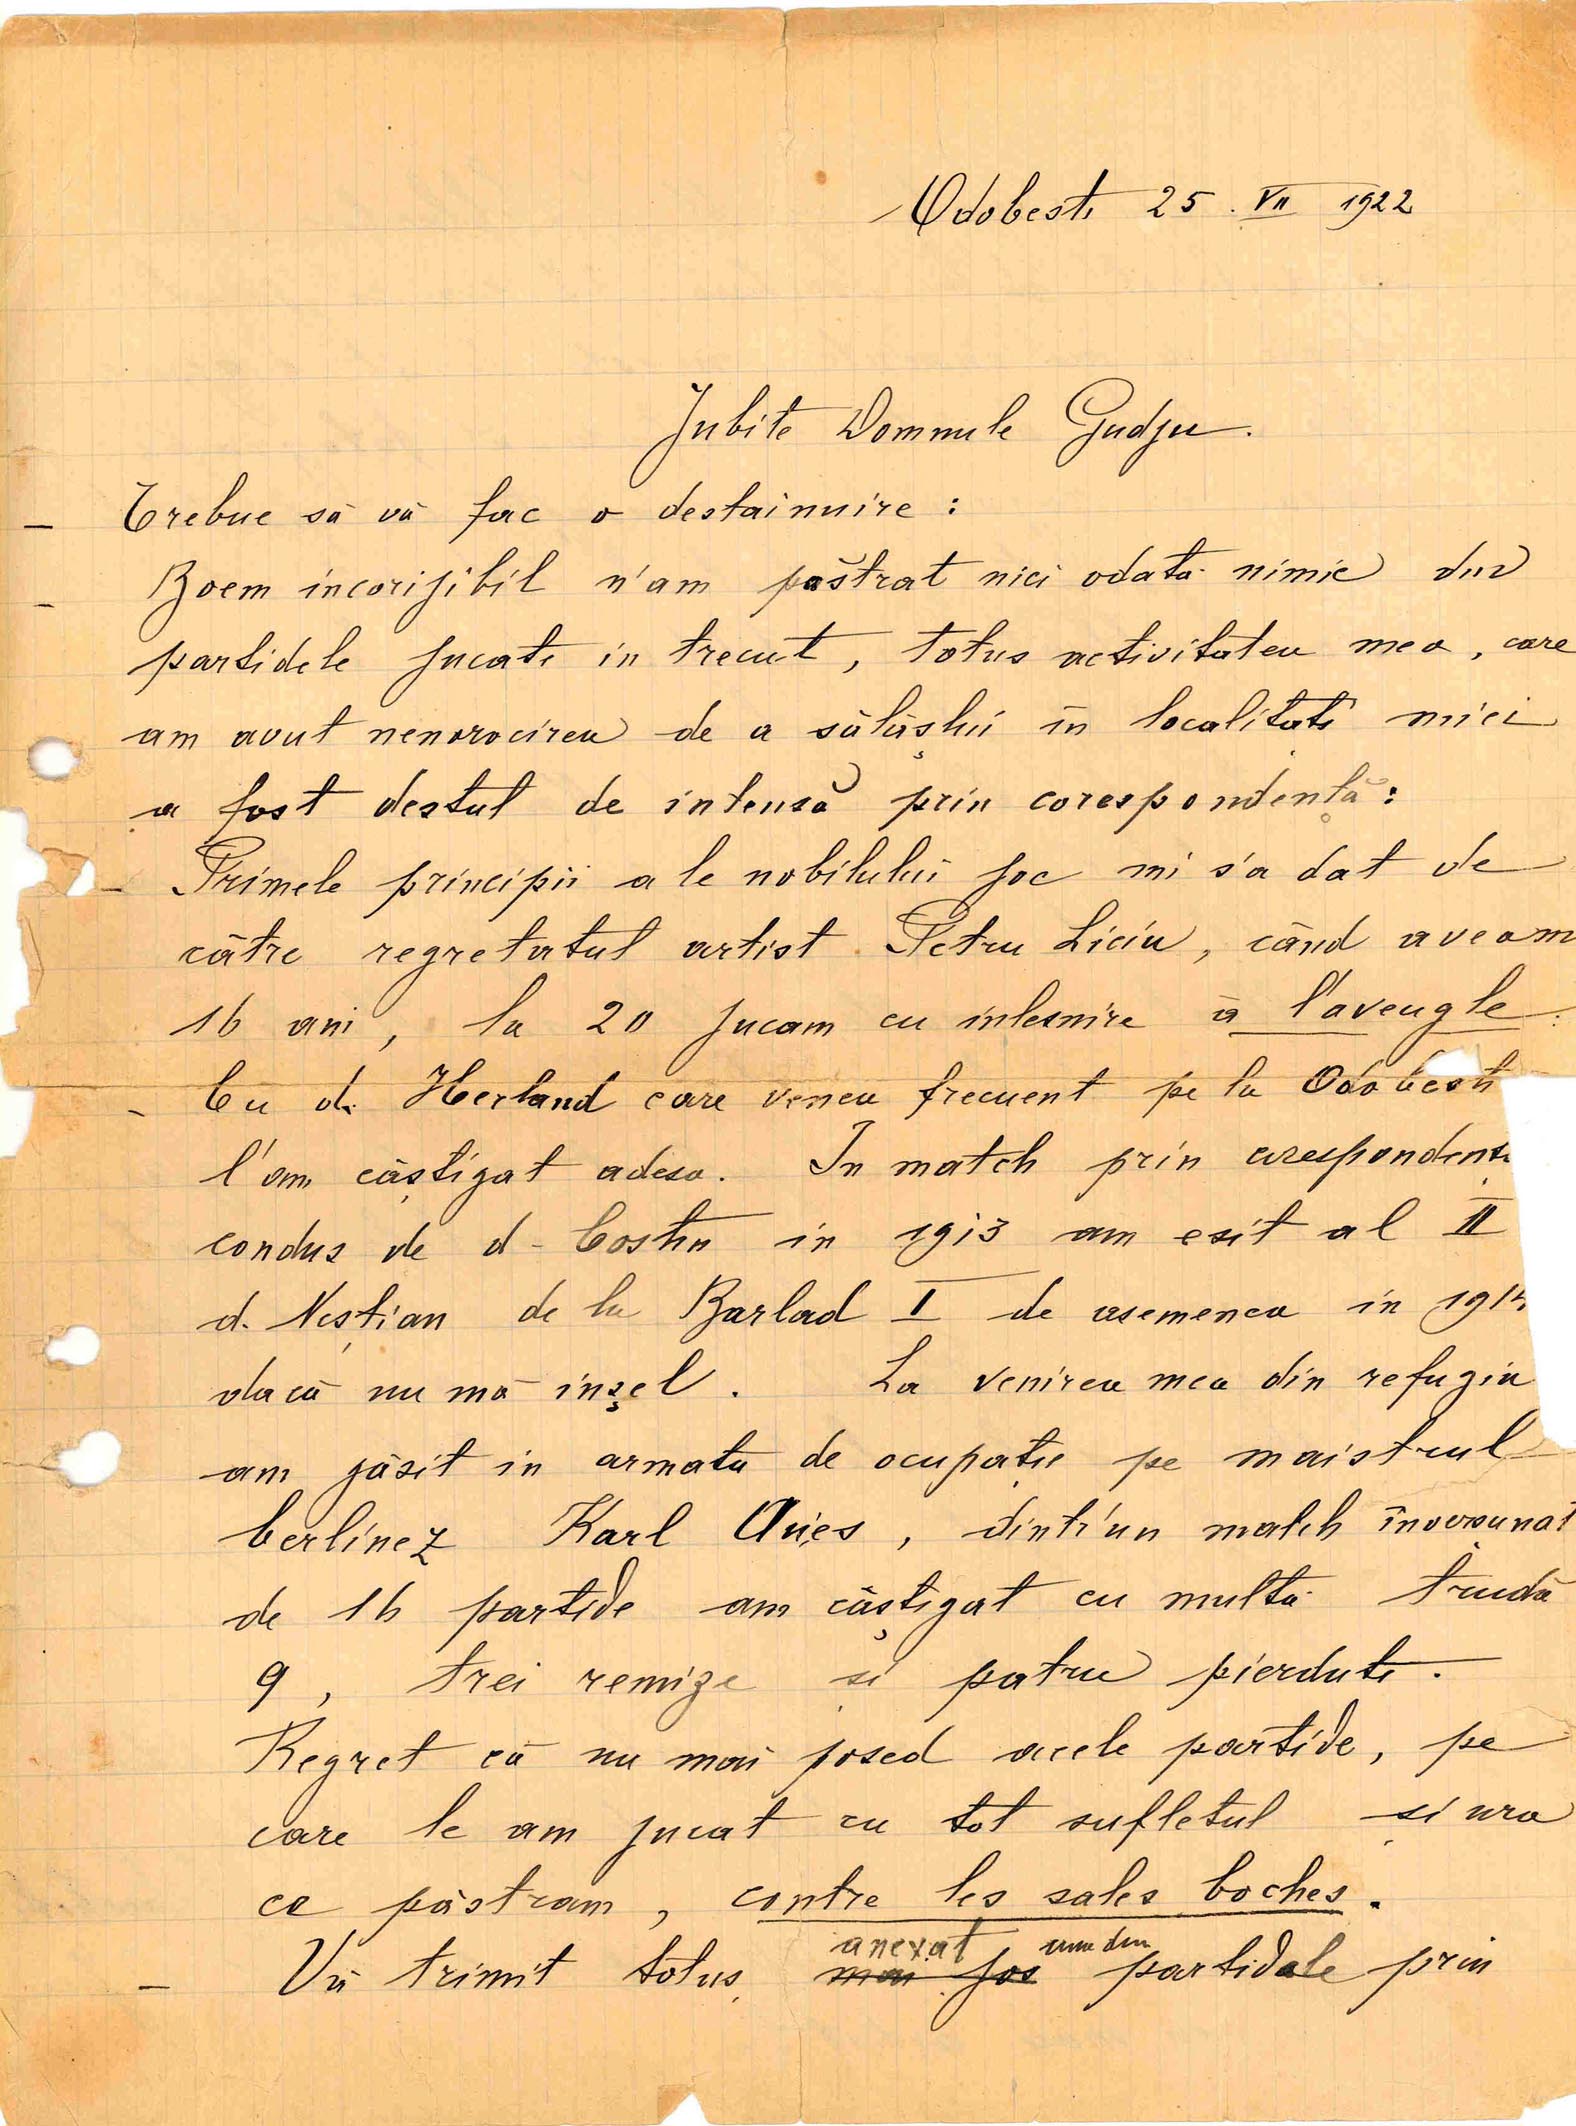 Odobesti 25. VII 1922
Jubite Domnule Gudju.
– Trebue să vă fac o destainuire :
– Boem incorijibil n'am păstrat nici odată nimic din
partidele jucate in trecut, totus activitatea mea, care
am avut nenorocirea de a sălășlui in localități mici
a fost destul de intensă prin corespondență :
– Primele principii ale nobilului joc mi s'a dat de
către regretatul artist Petru Liciu, când aveam
16 ani, la 20 jucam cu inlesnire à l'aveugle.
– Cu d. Herland care venea frecuent pe la Odobesti
l'am câștigat adesa. In match prin
condus de d- Costin in 1913 am esit al II
d. Neștian de la Barlad I de asemenea in
dacă nu mă inșel. La venirea mea din refugiu
am găsit in armata de ocupație pe maistrul
berlinez Karl , dintr'un match inverșunat
de 16 partide am câștigat cu multă trudă
9, trei remize și patru pierdute.
Regret că nu mai posed acele partide, pe
care le am jucat cu tot sufletul și ura
ce păstram, contre les sales boches.
anexat una din
– Vă trimit totuș mai jos partidele prin